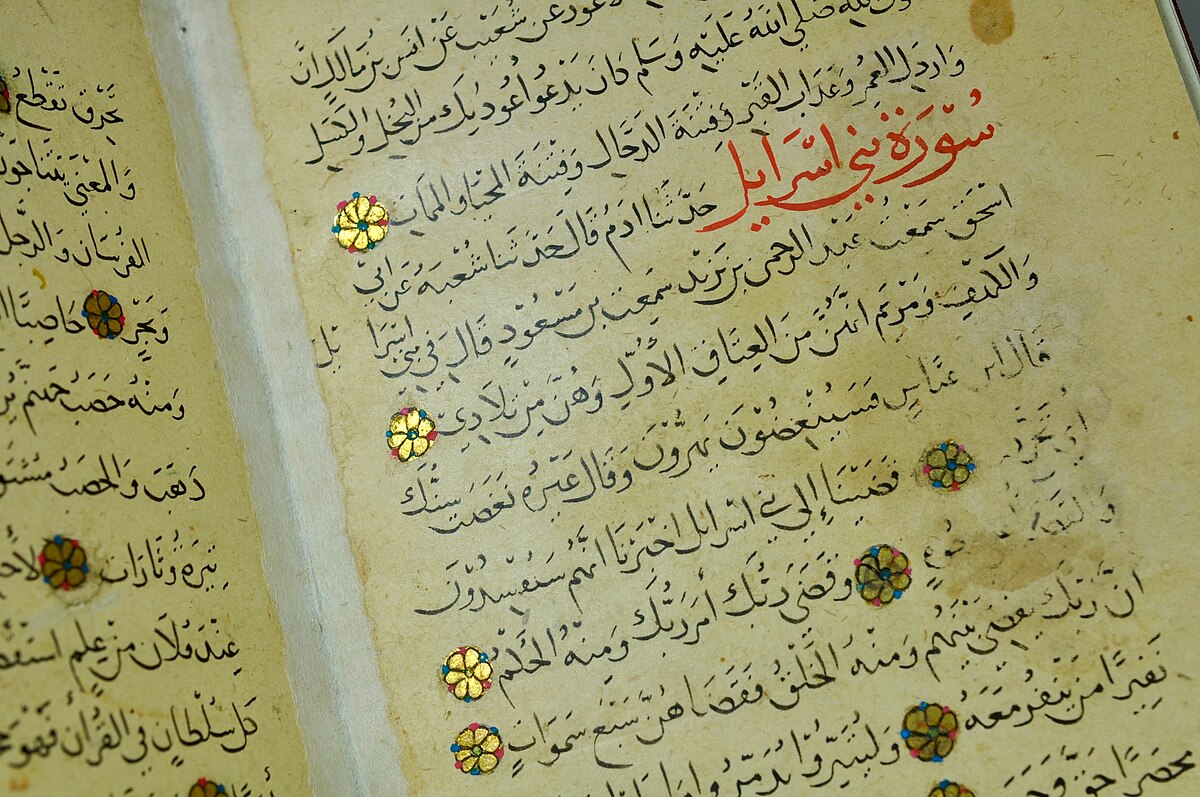 الاعور عن شعيب عن انس بن مالك ان
رسول الله صلى الله عليه وسلم كان يدعوا اعوذ بك من البخل والكسل
وارذل العمر وعذاب القبر وفتنة الدجال وفتنة المحيا والممات
سورة بني اسرايل حدثنا ادم قال حدثنا شعبة عن ابي
اسحق سمعت عبد الرحمن بن يزيد سمعت بن مسعود قال في بني اسرايل
والكهف ومريم انهن من العتاق الاول وهن من تلادي
قال ابن عباس فسينغضون يهزون وقال غيره نغضت سنك
اي تحركت قضينا إلى بني اسرايل اخبرنا انهم سيفسدون
والقضا وجوه وقضى ربك أمر ربك ومنه الحكم
ان ربك يقضي بينهم ومنه الخلق فقضاهن سبع سموات
نفيرا من ينفر معه وليتبروا يدمروا
محصرا حق
تخرق تقطع
والمعنى يتناجون
الفرسان والرجل
وتجر حاصبا
ومنه حصب جهنم
ذهب والحصب مشتق
تيرة وتارات
عند فلان من علم
كل سلطان في القران فهو